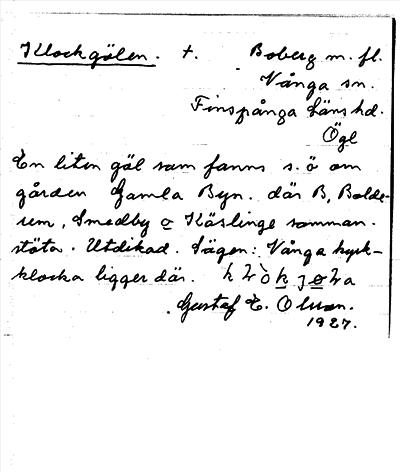 Klockgölen. +. Boberg m. fl.
Vånga sn.
Finspånga läns hd.
Ögl
En liten göl som fanns s. ö om
gården Gamla Byn. där B, Bolde-
rum, Smedby o Käslinge samman-
stöta. Utdikad. Sägen: Vånga kyrk-
klocka ligger där.
Gustaf E. Olsson.
1927.